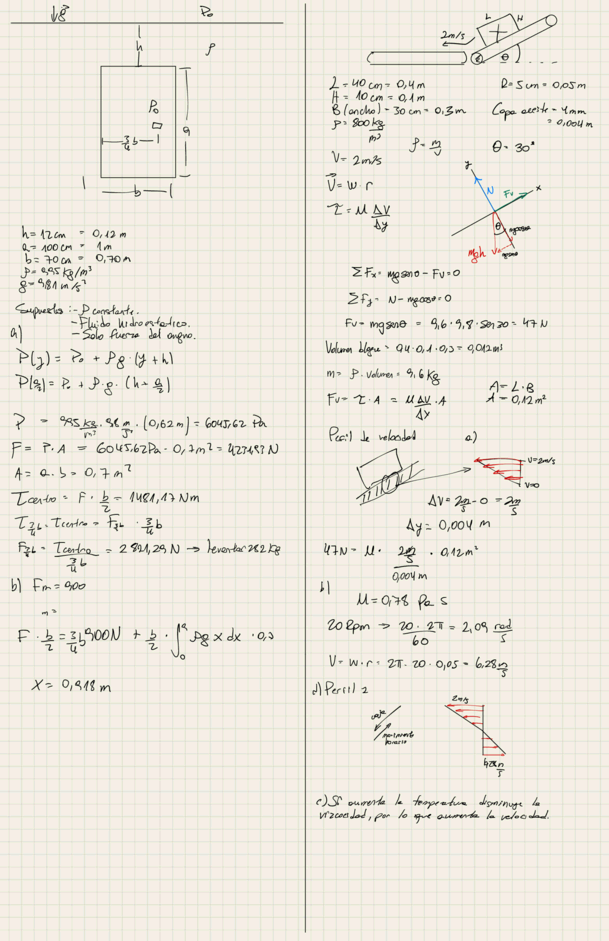 g P₀
h ρ
P₀
3/4 b
a
b
h = 12 cm = 0,12 m
a = 100 cm = 1 m
b = 70 cm = 0,70 m
ρ = 995 kg/m³
g = 9,81 m/s²
Supuestos: - ρ constante.
- Fluido hidrostático.
- Solo fuerza del agua.
a)
P(y) = P₀ + ρg · (y + h)
P(a/2) = P₀ + ρ · g · (h + a/2)
P = 995 kg/m³ · 9,8 m/s² · (0,62 m) = 6045,62 Pa
F = P · A = 6045,62 Pa · 0,7 m² = 4231,93 N
A = a · b = 0,7 m²
τcentro = F · b/2 = 1481,17 Nm
τ3/4b = τcentro = F3/4b · 3/4 b
F3/4b = τcentro / 3/4 b = 2821,29 N → levantar 282 kg
b) Fm = 900
m =
F · b/2 = 3/4 b 900N + b/2 · ∫₀ᵃ ρg x dx · 0,7
X = 0,918 m
L H
2m/s
θ
L = 40 cm = 0,4 m R = 5 cm = 0,05 m
H = 10 cm = 0,1 m
B (ancho) = 30 cm = 0,3 m Capa aceite = 4mm
= 0,004 m
ρ = 800 kg/m³
ρ = m/v θ = 30°
V = 2m/s
V = w · r
τ = μ ΔV/Δy
y N Fv x
θ mg cosθ
mgh mg senθ
ΣFx = mg senθ - Fv = 0
ΣFy = N - mg cosθ = 0
Fv = mg senθ = 9,6 · 9,8 · sen 30 = 47 N
Volumen bloque = 0,4 · 0,1 · 0,3 = 0,012 m³
m = ρ · volumen = 9,6 kg
A = L · B
Fv = τ · A = μ ΔV/Δy · A
A = 0,12 m²
Perfil de velocidad a)
V = 2m/s
V = 0
ΔV = 2m/s - 0 = 2m/s
Δy = 0,004 m
47N = μ · 2m/s / 0,004m · 0,12 m²
b)
μ = 0,78 Pa s
20 Rpm → 20 · 2π / 60 = 2,09 rad/s
V = w · r = 2π · 20 · 0,05 = 6,28 m/s
d) Perfil 2
2m/s
6,28 m/s
c) Si aumenta la temperatura disminuye la
vizcosidad, por lo que aumenta la velocidad.